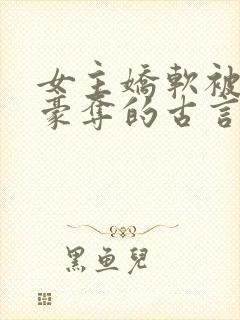 女主嬌軟被
豪奪的古言
黑魚兒